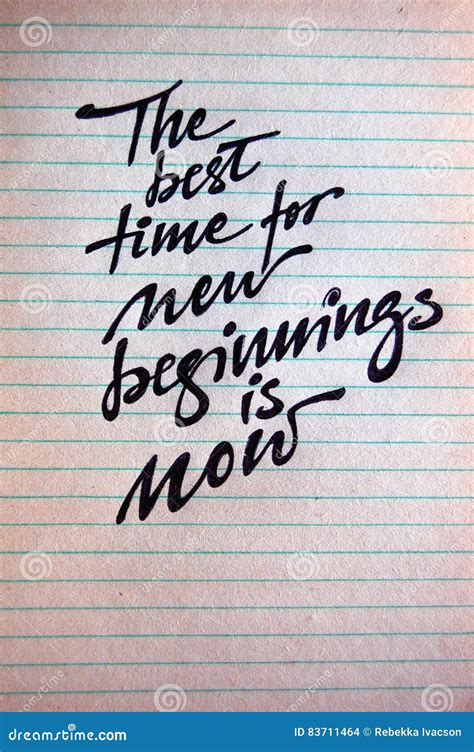 The
best
time for
new
beginnings
is
now
dreamstime.com
ID 83711464 © Rebekka Ivacson